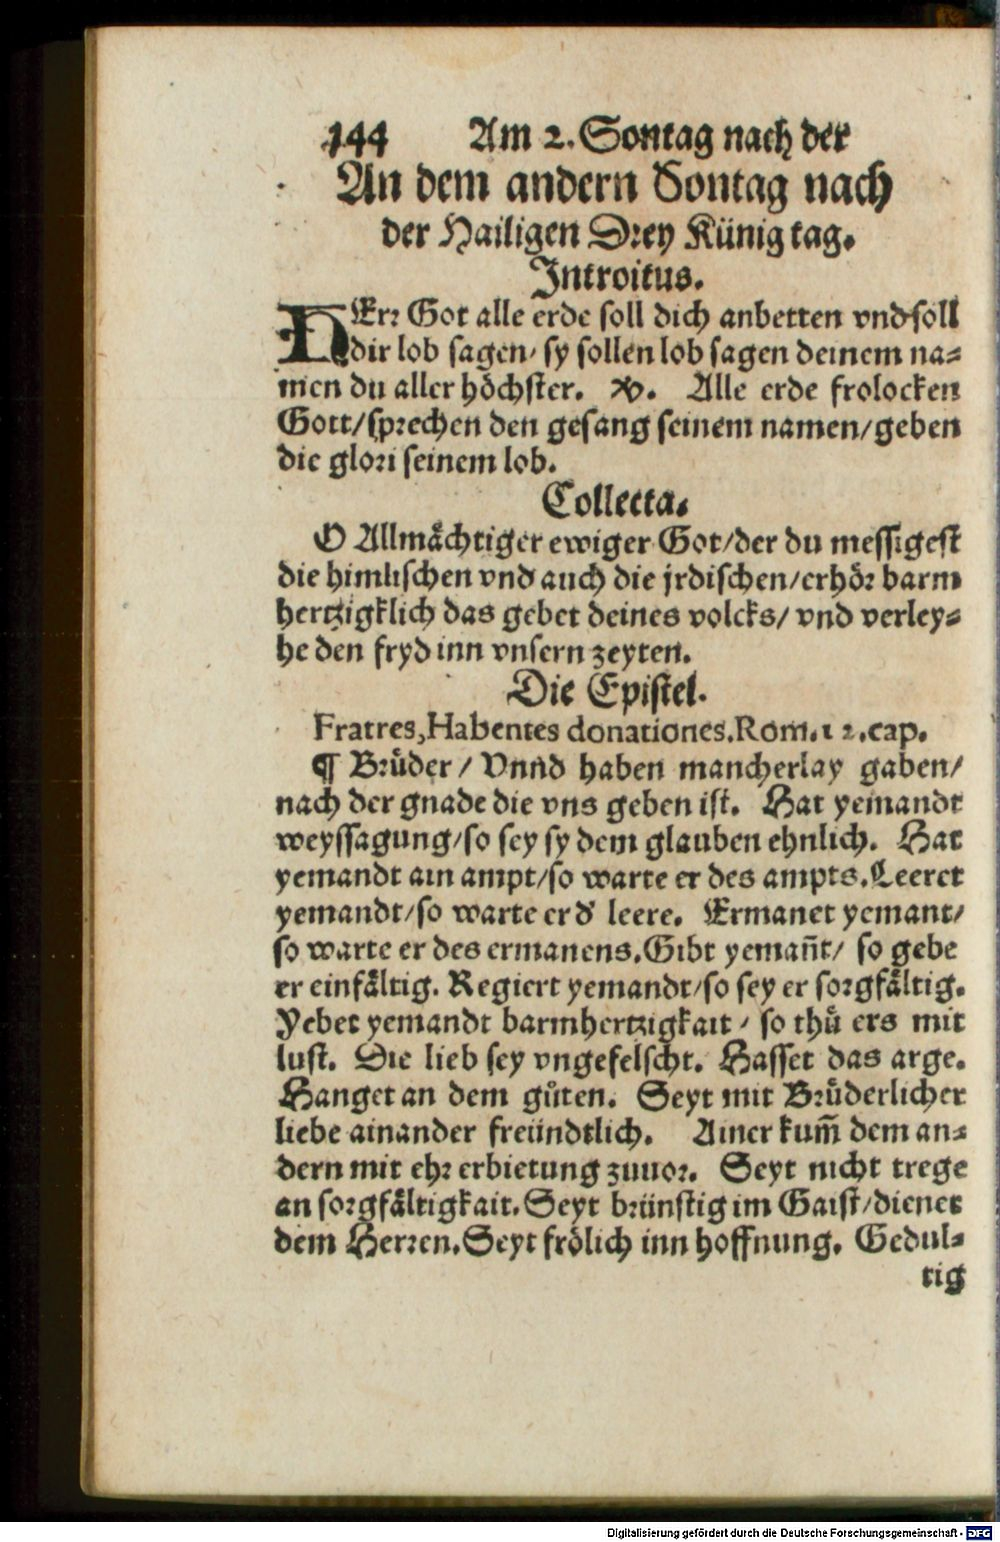 144 Am 2. Sontag nach der
An dem andern Sontag nach
der Hailigen Drey Künig tag.
Introitus.
HErr Got alle erde soll dich anbetten vnd soll
dir lob sagen/ sy sollen lob sagen deinem na⸗
men du aller höchster. ℣. Alle erde frolocken
Gott/sprechen den gesang seinem namen/geben
die glori seinem lob.
Collecta.
O Allmåchtiger ewiger Got/der du messigest
die himlischen vnd auch die jrdischen/erhör barm
hertzigklich das gebet deines volcks/ vnd verley⸗
he den fryd inn vnsern zeyten.
Die Epistel.
Fratres,Habentes donationes.Rom.12.cap.
¶ Brůder / Vnnd haben mancherlay gaben/
nach der gnade die vns geben ist. Hat yemandt
weyssagung/so sey sy dem glauben ehnlich. Hat
yemandt ain ampt/so warte er des ampts.Leeret
yemandt/so warte er d' leere. Ermanet yemant/
so warte er des ermanens.Gibt yemañt/ so gebe
er einfåltig. Regiert yemandt/so sey er sorgfåltig.
Yebet yemandt barmhertzigkait / so thů ers mit
lust. Die lieb sey vngefelscht. Hasset das arge.
Hanget an dem gůten. Seyt mit Brůderlicher
liebe ainander freündtlich. Ainer kum̃ dem an⸗
dern mit ehr erbietung zuuor. Seyt nicht trege
an sorgfåltigkait.Seyt brünstig im Gaist/dienet
dem Herren.Seyt frölich inn hoffnung. Gedul⸗
tig
Digitalisierung gefördert durch die Deutsche Forschungsgemeinschaft - DFG